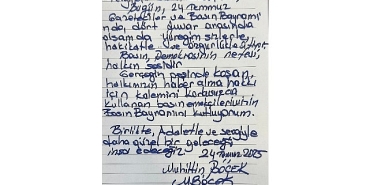 Bugün, 24 Temmuz
Gazeteciler ve Basın Bayramı
nda, dört duvar arasında
olsam da yüreğim sizlerle,
hakikatle ve özgürlükle
Basın, Demokrasinin nefesi,
halkın sesidir.
Gerçeğin peşinde koşan,
halkımızın haber alma hakkı
için kalemini korkusuzca
kullanan basın emekçilerimizin
Basın Bayramını kutluyorum.
Birlikte, Adaletle ve sevgiyle
daha güzel bir geleceği
inşa edeceğiz 24 Temmuz 2025
Muhittin BÖCEK
MBÖCEK